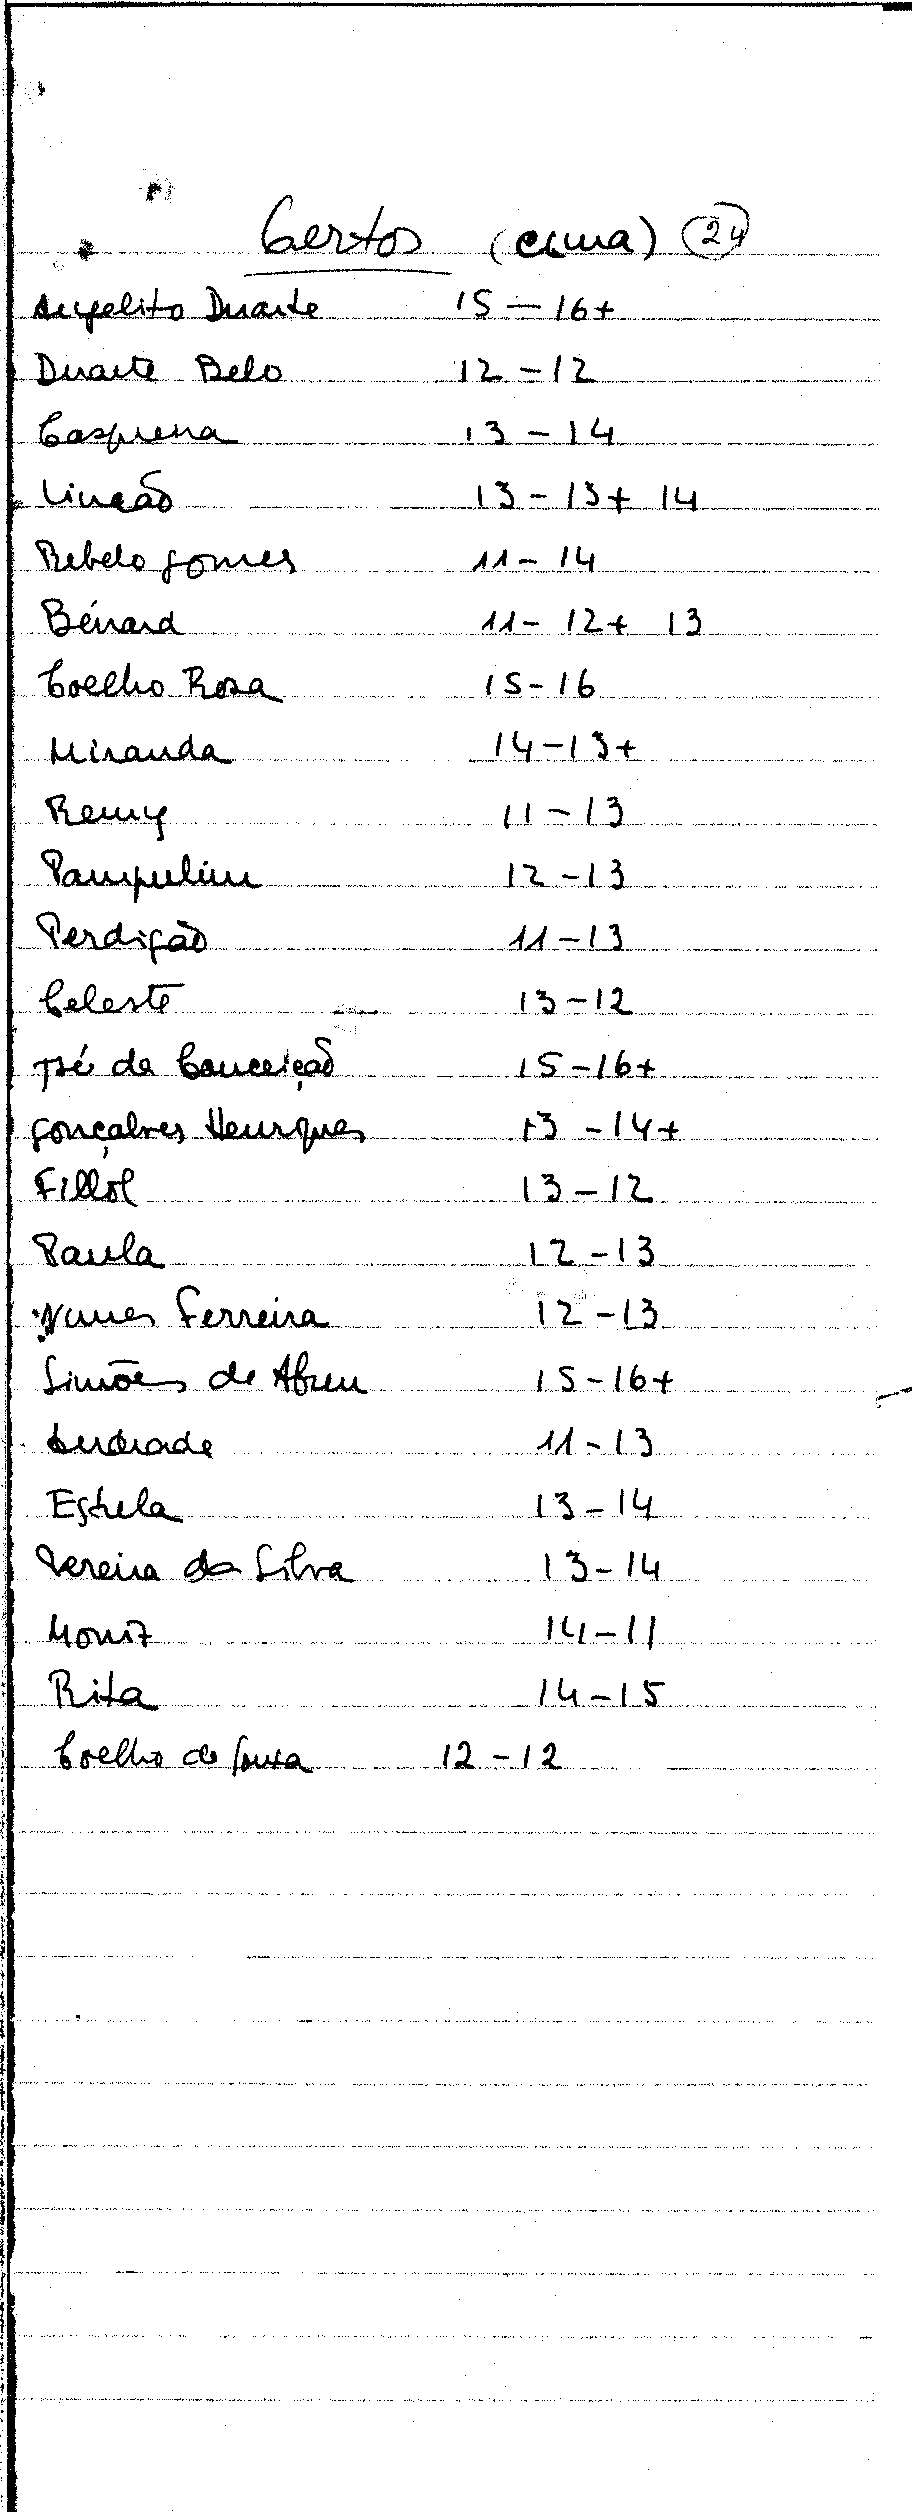 Certos (cima) 24
Angelito Duarte 15 - 16+
Duarte Belo 12 - 12
Casqueira 13 - 14
Lincão 13 - 13+ 14
Rebelo Gomes 11 - 14
Bénard 11 - 12+ 13
Coelho Rosa 15 - 16
Miranda 14 - 13+
Remy 11 - 13
Pampulim 12 - 13
Perdigão 11 - 13
Celeste 13 - 12
Zé da Conceição 15 - 16+
Gonçalves Henriques 13 - 14+
Fillol 13 - 12
Paula 12 - 13
Nunes Ferreira 12 - 13
Simões de Abreu 15 - 16+
Andrade 11 - 13
Estrela 13 - 14
Pereira da Silva 13 - 14
Moniz 14 - 11
Rita 14 - 15
Coelho de Sousa 12 - 12